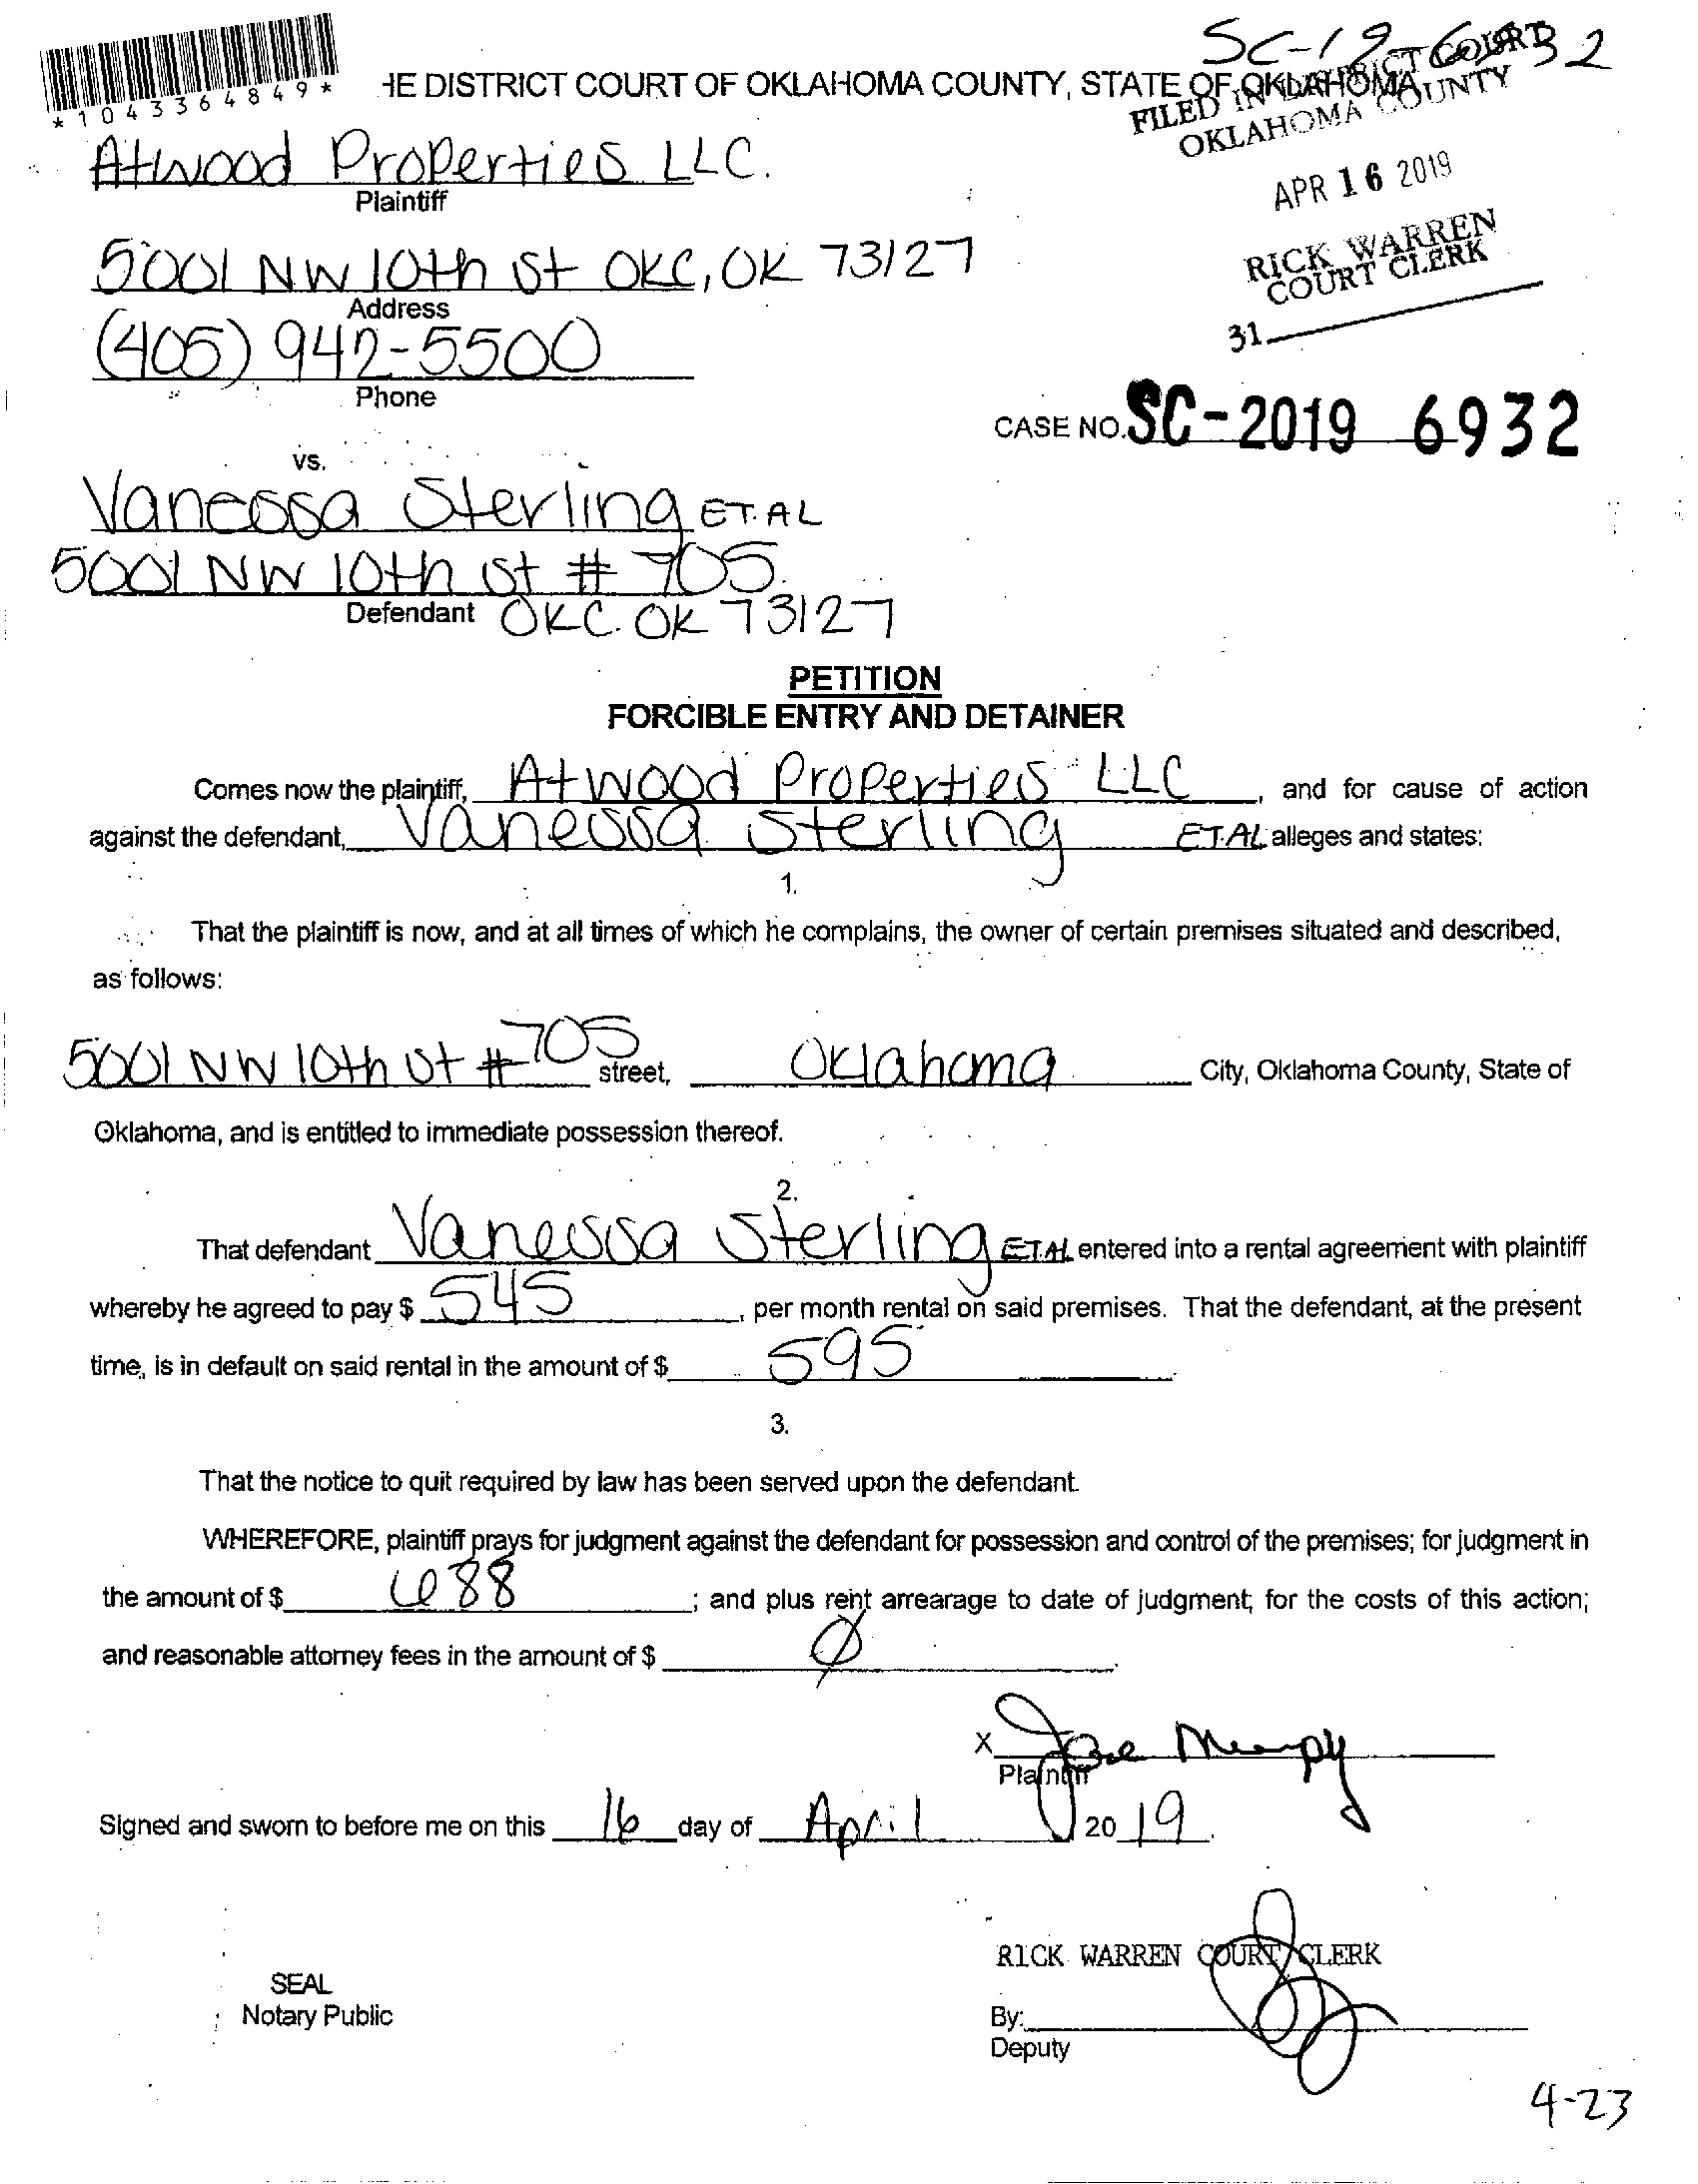 SC-19-6932
*1043364849*
HE DISTRICT COURT OF OKLAHOMA COUNTY, STATE OF OKLAHOMA
FILED IN DISTRICT COURT
OKLAHOMA COUNTY
APR 16 2019
RICK WARREN
COURT CLERK
31
Atwood Properties LLC.
Plaintiff
5001 NW 10th St OKC, OK 73127
Address
(405) 942-5500
Phone
CASE NO. SC-2019 6932
vs.
Vanessa Sterling ET. AL
5001 NW 10th St # 705
Defendant OKC. OK 73127
PETITION
FORCIBLE ENTRY AND DETAINER
Comes now the plaintiff, Atwood Properties LLC, and for cause of action
against the defendant, Vanessa Sterling ET.AL alleges and states:
1.
That the plaintiff is now, and at all times of which he complains, the owner of certain premises situated and described,
as follows:
5001 NW 10th St # 705 street, Oklahoma City, Oklahoma County, State of
Oklahoma, and is entitled to immediate possession thereof.
2.
That defendant Vanessa Sterling ET.AL entered into a rental agreement with plaintiff
whereby he agreed to pay $ 545, per month rental on said premises. That the defendant, at the present
time, is in default on said rental in the amount of $ 595.
3.
That the notice to quit required by law has been served upon the defendant.
WHEREFORE, plaintiff prays for judgment against the defendant for possession and control of the premises; for judgment in
the amount of $ 688; and plus rent arrearage to date of judgment; for the costs of this action;
and reasonable attorney fees in the amount of $ Ø.
X
Plaintiff
Signed and sworn to before me on this 16 day of April 20 19.
RICK WARREN COURT CLERK
SEAL
Notary Public
By:
Deputy
4-23